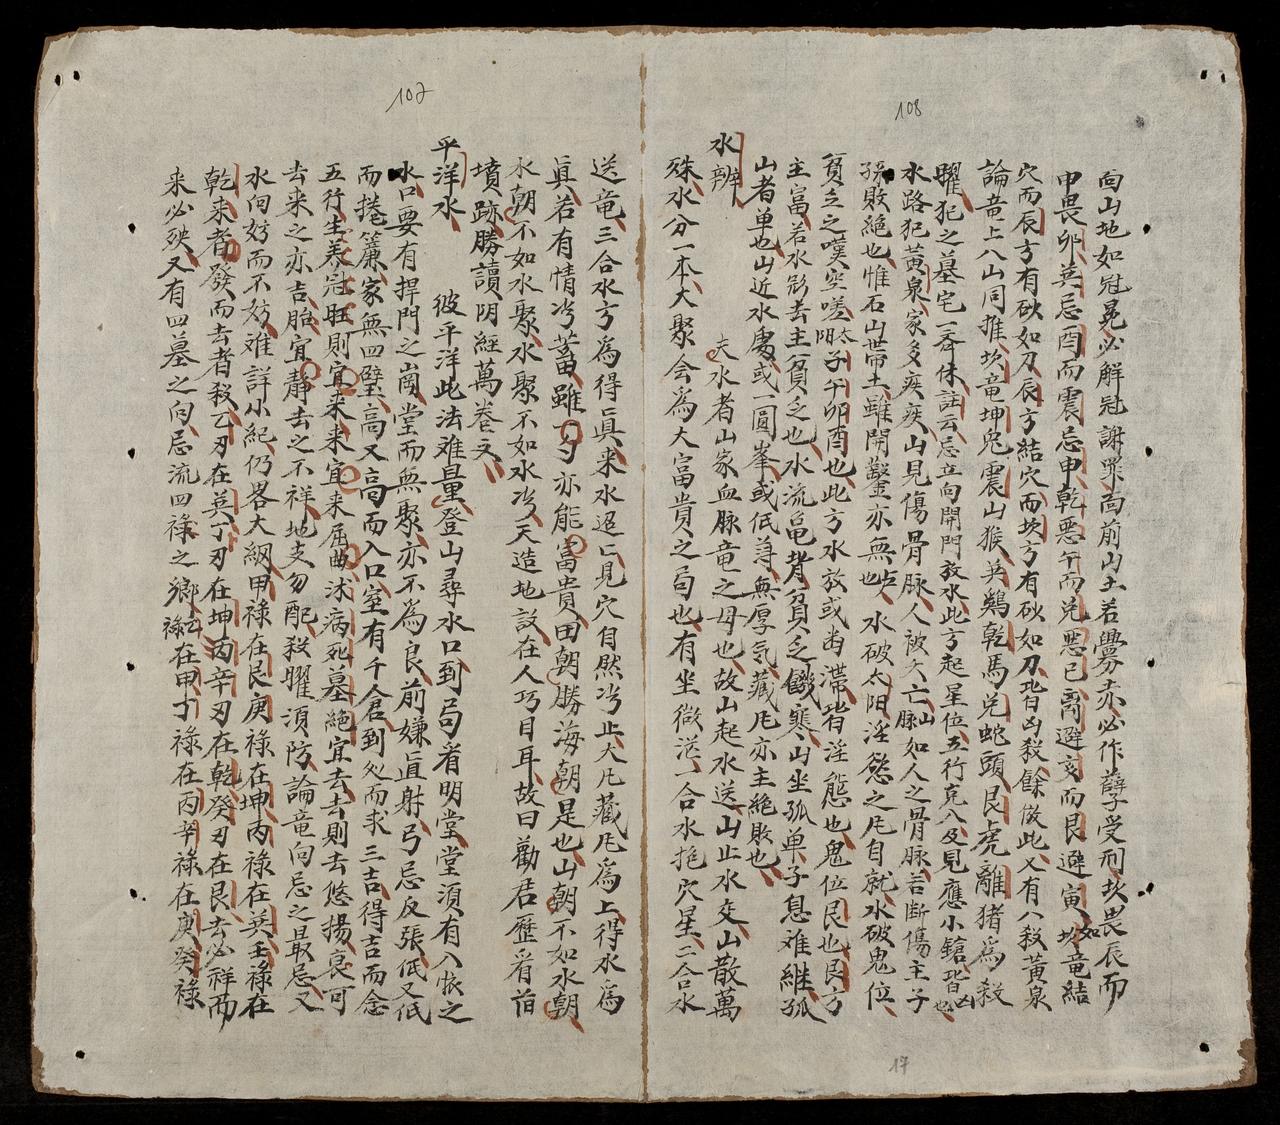 108
向山地如冠冕必解冠謝罪面前山土若釁赤必作孽受刑坎畏辰而
申畏卯英忌酉而震忌申乾惡午而兌惡巳离避亥而艮避寅如坎竜結
穴而辰方有砍如刀辰方結穴而坎方有砍如刀皆凶殺餘倣此又有八殺黃泉
論竜上八山同推坎竜坤兔震山猴英鷄乾馬兌蛇頭艮虎離猪爲殺
曜犯之墓宅一斉休註云忌立向開門放水此方起星位五行克入及見應小鎗皆凶也
水路犯黃泉家多疾疾山見傷骨脉人人被欠亡山脉如人之骨脉若断傷主子
孫敗絶也惟石山帶土雖開鑿亦無貞也水破太阳淫慾之凡自就水破鬼位
貧乏之嘆空嗟太阳子午卯酉也此方水放或凼滞皆淫態也鬼位艮也艮方
主富若水影去主貧乏也水流黾背貧乏饑寒山坐孤単子息难継孤
山者单也山近水處或一圓峯或低蕁無厚気藏凡亦主絶敗也
水辨 夫水者山家血脉竜之母也故山起水送山止水交山散萬
殊水分一本大聚会為大富貴之局也有坐微送一合水抱穴星二合水
107
送竜三合水方為得眞来水迢亡見穴自然冷止大凡藏凡爲上得水爲
眞若有情冷蓄雖一夕亦能富貴田朝勝海朝是也山朝不如水朝
水朝不如水聚水聚不如水冷天造地設在人巧目耳故曰勸君歷看首
墳跡勝讀阴經萬卷文
平洋水 彼平洋此法难量登山尋水口到局看明堂堂須有入懷之
水口要有捍門之崗堂而無聚亦不為良前嫌直射弓忌反張低又低
而捲簾家無四壁高又高而入口室有千倉到処而求三吉得吉而念
五行生养冠旺則宜来来宜来屈曲沭病死墓絶宜去去則去悠揚衰可
去来之亦吉胎宜静去之不祥地支勿配殺曜須防論竜向忌之最忌又
水向妨而不妨难詳小紀仍畧大綱甲祿在艮庚祿在坤丙祿在英壬祿在
乾来者發而去者殺乙刃在英丁刃在坤丙辛刃在乾癸刃在艮去必祥而
来必殃又有四墓之向忌流四祿之鄉乙祿在甲丁祿在丙辛祿在庚癸祿
17